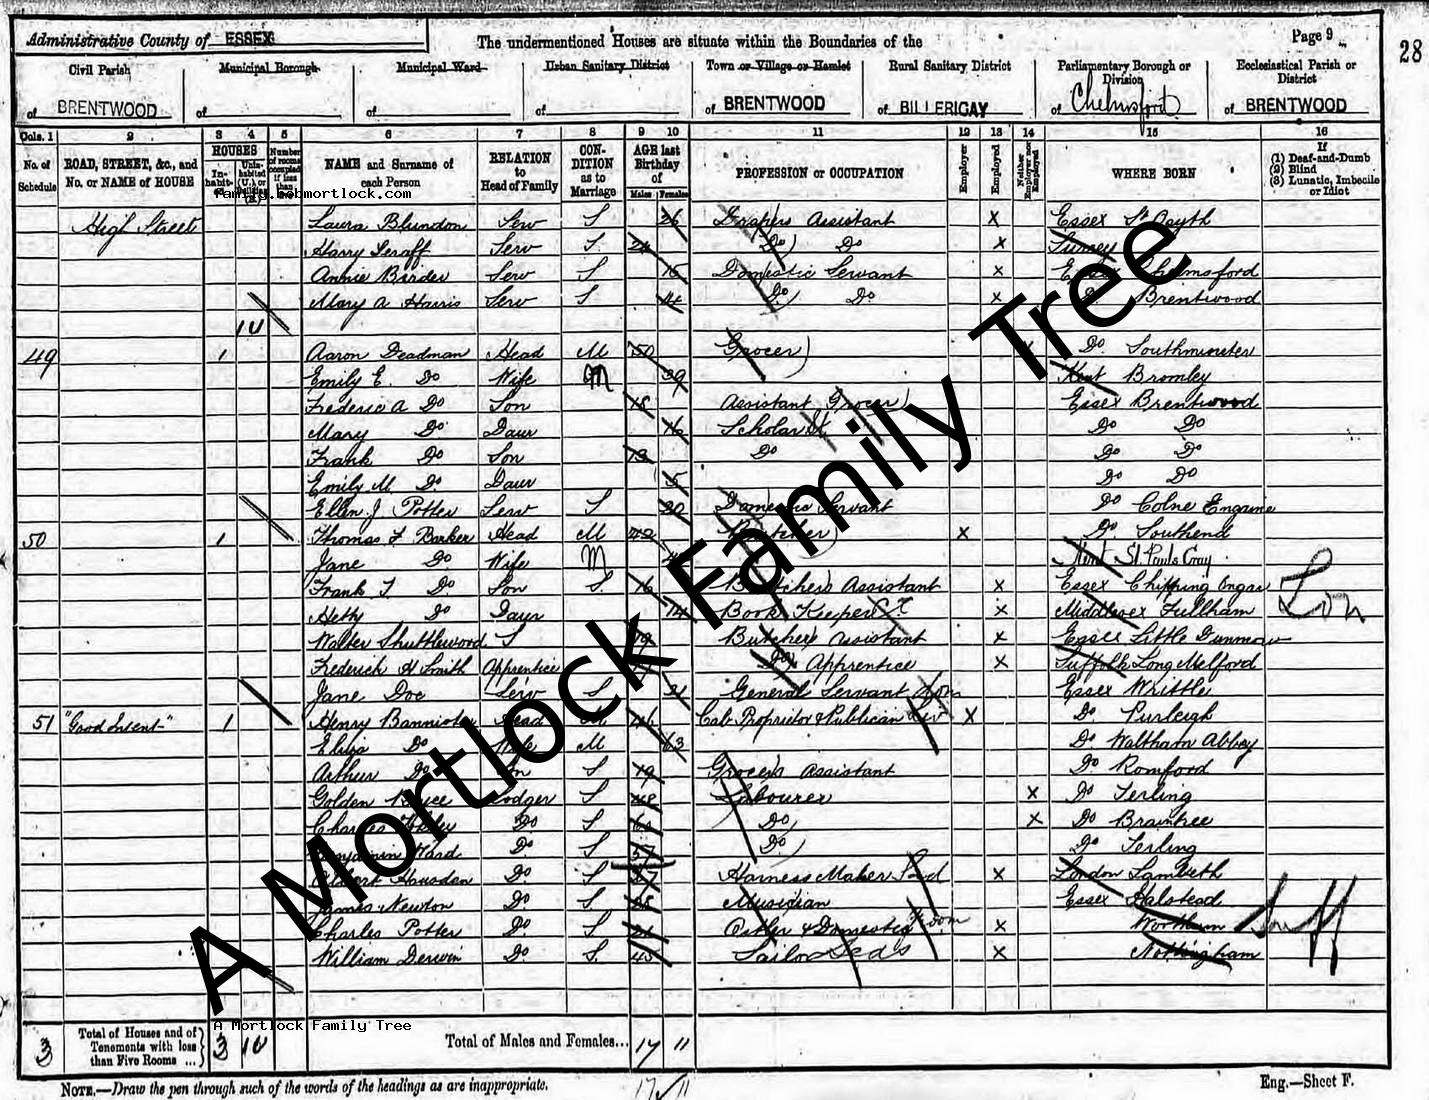 Administrative County of ESSEX
The undermentioned Houses are situate within the Boundaries of the
Page 9
28
Civil Parish of BRENTWOOD
Municipal Borough of
Municipal Ward of
Urban Sanitary District of
Town or Village or Hamlet of BRENTWOOD
Rural Sanitary District of BILLERICAY
Parliamentary Borough or Division of Chelmsford
Ecclesiastical Parish or District of BRENTWOOD
Cols. 1 2 3 4 5 6 7 8 9 10 11 12 13 14 15 16
No. of Schedule
ROAD, STREET, &c., and No. or NAME of HOUSE
HOUSES
NAME and Surname of each Person
RELATION to Head of Family
CONDITION as to Marriage
AGE last Birthday of
Males Females
PROFESSION or OCCUPATION
Employer
Employed
WHERE BORN
If
(1) Deaf-and-Dumb
(2) Blind
(3) Lunatic, Imbecile or Idiot
family.robmortlock.com
High Street Laura Blundon Serv S 26 Drapers Assistant X Essex St Osyth
Harry Seraff Serv S 24 Do Do X Surrey
Annie Birder Serv S 15 Domestic Servant X Essex Chelmsford
Mary A Harris Serv S 14 Do Do X Do Brentwood
1U
49 1 Aaron Deadman Head M 50 Grocer Do Southminster
Emily E. Do Wife M 39 Kent Bromley
Frederic A Do Son 18 Assistant Grocer Essex Brentwood
Mary Do Daur 16 Scholar Do Do
Frank Do Son 13 Do Do Do
Emily M Do Daur 5 Do Do
Ellen J Potter Serv S 20 Domestic Servant Do Colne Engaine
50 1 Thomas F Barker Head M 42 Butcher X Do Southend
Jane Do Wife M Kent St Pauls Cray
Frank T Do Son S 16 Butchers Assistant X Essex Chipping Ongar
Hetty Do Daur 14 Book Keeper X Middlesex Fullham Lon
Walter Shuttlewood S 19 Butchers Assistant X Essex Little Dunmow
Frederick H Smith Apprentice Do Apprentice X Suffolk Long Melford
Jane Doe Serv S 21 General Servant Dom Essex Writtle
51 "Good Intent" 1 Henry Bannister Head M 46 Cab Proprietor & Publican X Do Purleigh
Eliza Do Wife M 43 Do Waltham Abbey
Arthur Do Son S 19 Grocers Assistant Do Romford
Golden Lodger S 48 Labourer X Do Terling
Charles Do S Do X Do Braintree
Benjamin Ward Do S 57 Do Do Terling
Albert Housden Do S 37 Harness Maker X London Lambeth
James Newton Do S 28 Musician Essex Halstead
Charles Potter Do S 21 Ostler & Domestic Dom X Suff
William Derwin Do S 45 Tailor X Nottingham
A Mortlock Family Tree
A Mortlock Family Tree
3 Total of Houses and of Tenements with less than Five Rooms ... 3 1U Total of Males and Females... 17 11
17 11
NOTE.—Draw the pen through such of the words of the headings as are inappropriate.
Eng.—Sheet F.